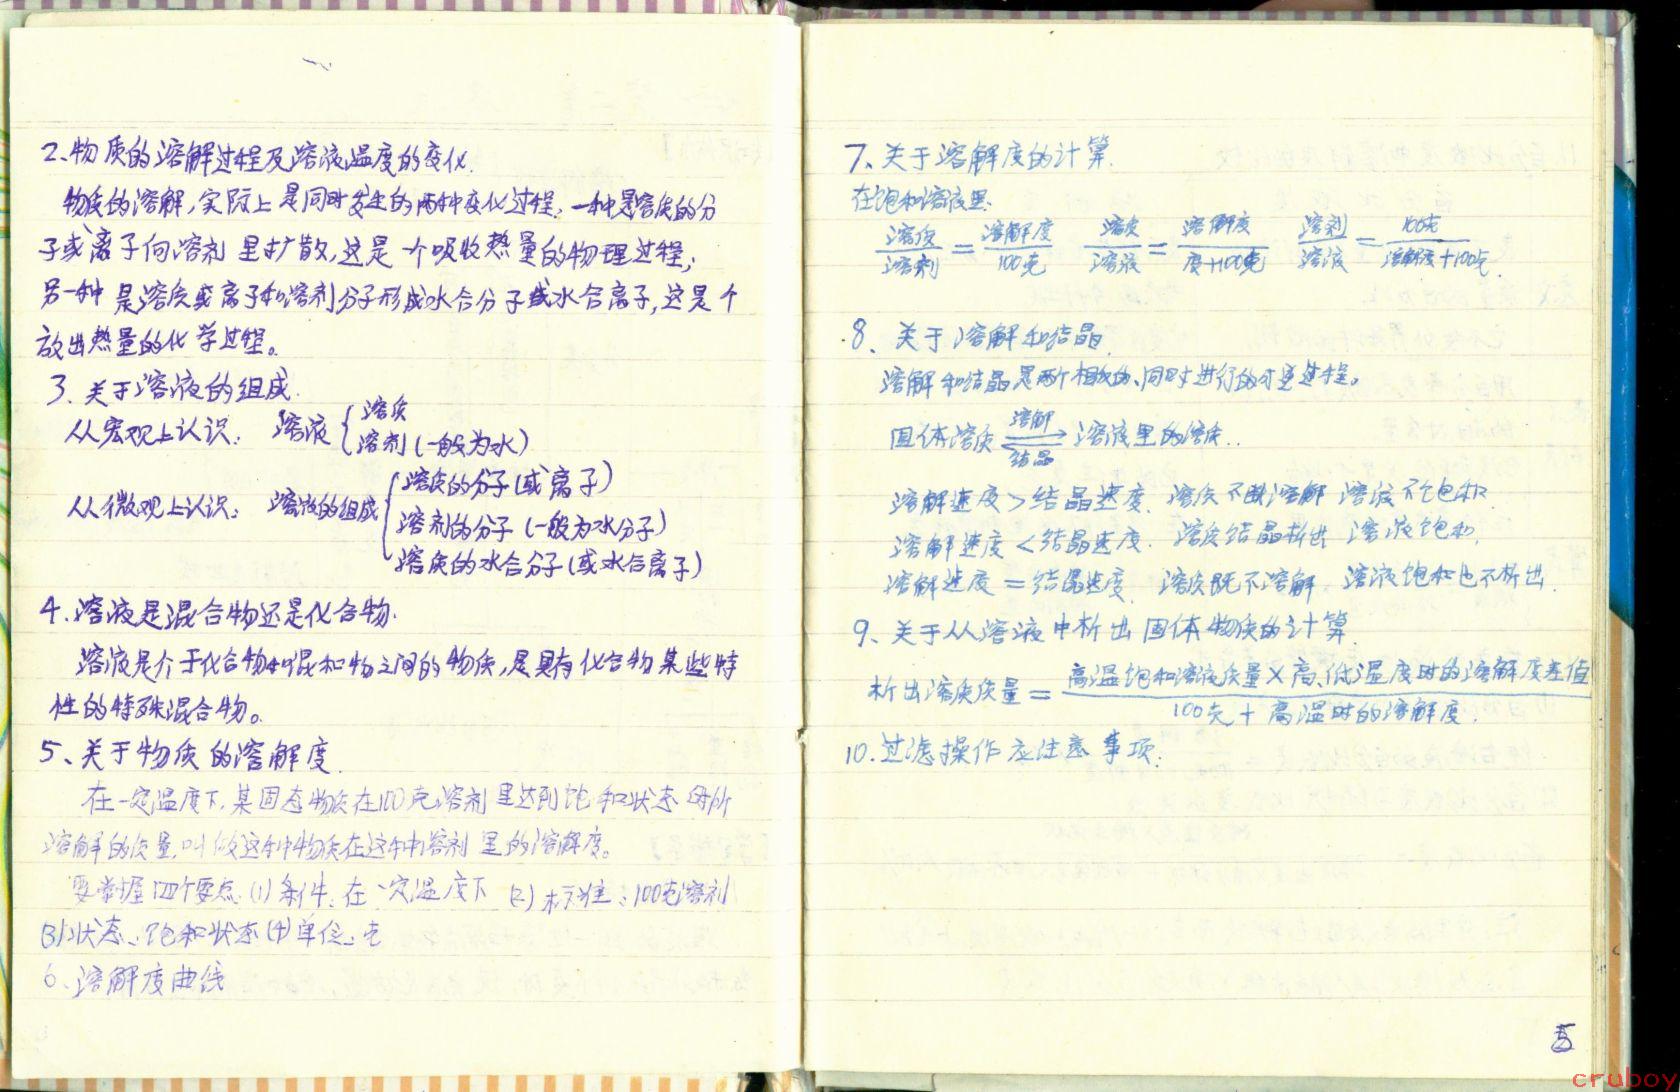 2、物质的溶解过程及溶液温度的变化.
物质的溶解,实际上是同时发生的两种变化过程,一种是溶质的分
子或离子向溶剂里扩散,这是一个吸收热量的物理过程;
另一种是溶质或离子和溶剂分子形成水合分子或水合离子,这是个
放出热量的化学过程。
3、关于溶液的组成.
从宏观上认识: 溶液 { 溶质
溶剂(一般为水)
从微观上认识: 溶液的组成 { 溶质的分子(或离子)
溶剂的分子(一般为水分子)
溶质的水合分子(或水合离子)
4、溶液是混合物还是化合物.
溶液是介于化合物和混和物之间的物质,是具有化合物某些特
性的特殊混合物。
5、关于物质的溶解度
在一定温度下,某固态物质在100克溶剂里达到饱和状态时所
溶解的质量,叫做这种物质在这种溶剂里的溶解度。
要掌握四个要点(1)条件:在一定温度下 (2)标准:100克溶剂
(3)状态:饱和状态(4)单位:克
6、溶解度曲线
7、关于溶解度的计算.
在饱和溶液里.
溶质/溶剂=溶解度/100克 溶质/溶液=溶解度/度+100克 溶剂/溶液=100克/溶解度+100克.
8、关于溶解和结晶.
溶解和结晶是两个相反的、同时进行的可逆过程。
固体溶质 溶解⇌结晶 溶液里的溶质..
溶解速度>结晶速度. 溶质不断溶解 溶液不饱和.
溶解速度<结晶速度. 溶质结晶析出 溶液饱和.
溶解速度=结晶速度. 溶质既不溶解 溶液饱和也不析出.
9、关于从溶液中析出固体物质的计算.
析出溶质质量=高温饱和溶液质量×高、低温度时的溶解度差值/100克+高温时的溶解度.
10.过滤操作应注意事项.
5
cruboy